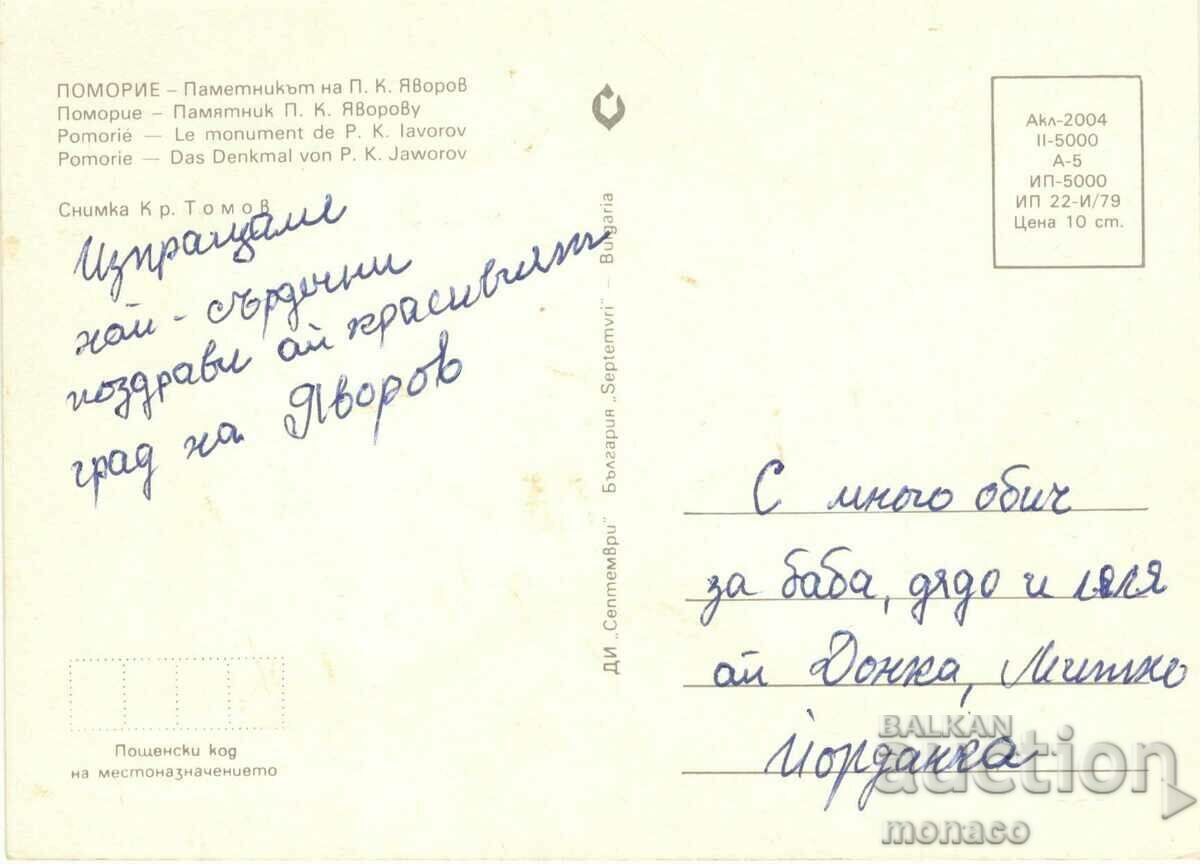 ПОМОРИЕ — Паметникът на П. К. Яворов
Помориe — Памятник П. К. Яворову
Pomorié — Le monument de P. K. Iavorov
Pomorie — Das Denkmal von P. K. Jaworov
Снимка Кр. Томов
Изпращаме
най-сърдечни
поздрави от красивият
град на Яворов
ДИ „Септември" България „Septemvri" — Bulgaria
Акл-2004
II-5000
А-5
ИП-5000
ИП 22-И/79
Цена 10 ст.
С много обич
за баба, дядо и леля
от Донка, Митко
Йорданка
Пощенски код
на местоназначението
BALKAN
auction
monaco